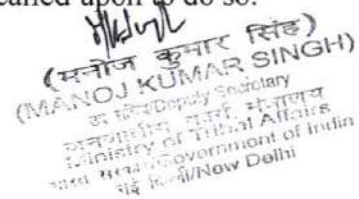 called upon to do so.
(मनोज कुमार सिंह)
(MANOJ KUMAR SINGH)
उप सचिव/Deputy Secretary
जनजातीय कार्य मंत्रालय
Ministry of Tribal Affairs
भारत सरकार/Government of India
नई दिल्ली/New Delhi